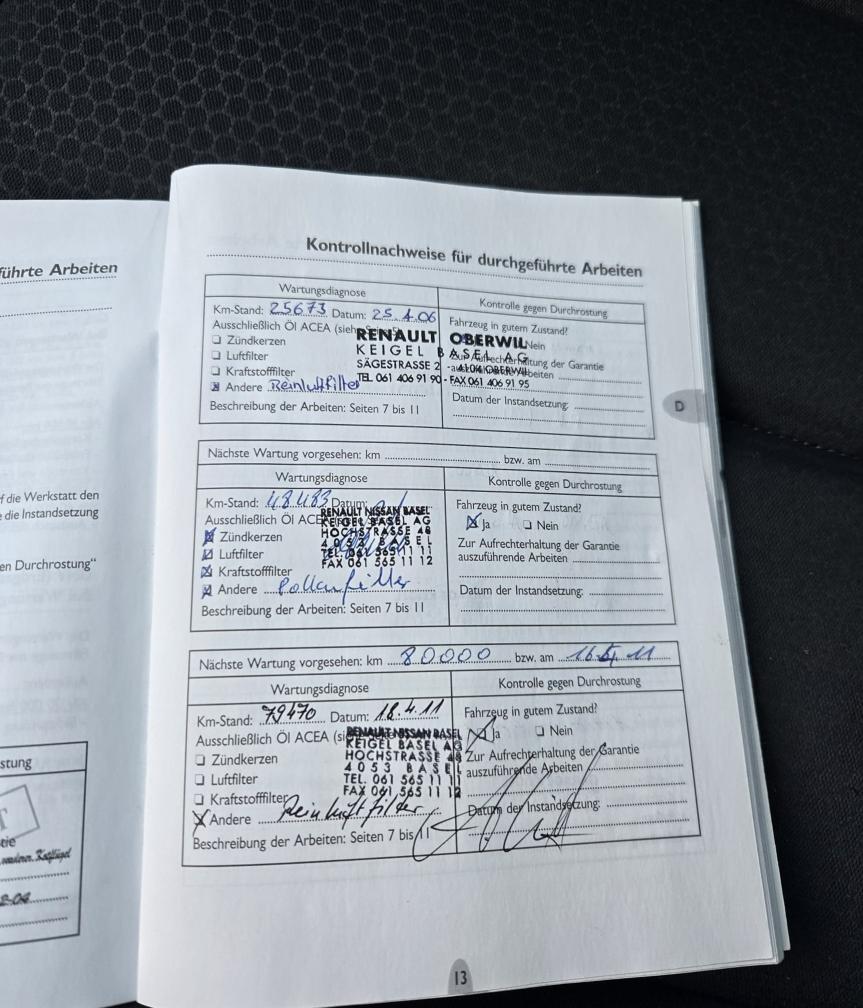 führte Arbeiten
f die Werkstatt den
die Instandsetzung
en Durchrostung“
stung
tie
2-04
Kontrollnachweise für durchgeführte Arbeiten
Wartungsdiagnose
Km-Stand: 25673 Datum: 25.4.06
Ausschließlich Öl ACEA (sieh
Zündkerzen
Luftfilter
Kraftstofffilter
Andere Reinluftfilter
Beschreibung der Arbeiten: Seiten 7 bis 11
Kontrolle gegen Durchrostung
Fahrzeug in gutem Zustand?
Nein
Zur Aufrechterhaltung der Garantie
Arbeiten
Datum der Instandsetzung:
RENAULT OBERWIL
KEIGEL BASEL AG
SÄGESTRASSE 2 - 4104 OBERWIL
TEL. 061 406 91 90 - FAX 061 406 91 95
D
Nächste Wartung vorgesehen: km bzw. am
Wartungsdiagnose
Km-Stand: 48483 Datum:
Ausschließlich Öl ACE
Zündkerzen
Luftfilter
Kraftstofffilter
Andere Pollenfilter
Beschreibung der Arbeiten: Seiten 7 bis 11
RENAULT NISSAN BASEL
KEIGEL BASEL AG
HOCHSTRASSE 48
4053 BASEL
TEL. 061 565 11 11
FAX 061 565 11 12
Kontrolle gegen Durchrostung
Fahrzeug in gutem Zustand?
Ja Nein
Zur Aufrechterhaltung der Garantie
auszuführende Arbeiten
Datum der Instandsetzung:
Nächste Wartung vorgesehen: km 80000 bzw. am 11
Wartungsdiagnose
Km-Stand: 79470 Datum: 18.4.11
Ausschließlich Öl ACEA (si
Zündkerzen
Luftfilter
Kraftstofffilter
Andere Reinluftfilter
Beschreibung der Arbeiten: Seiten 7 bis 11
RENAULT NISSAN BASEL
KEIGEL BASEL AG
HOCHSTRASSE 48
4053 BASEL
TEL. 061 565 11 11
FAX 061 565 11 12
Kontrolle gegen Durchrostung
Fahrzeug in gutem Zustand?
Ja Nein
Zur Aufrechterhaltung der Garantie
auszuführende Arbeiten
Datum der Instandsetzung:
13